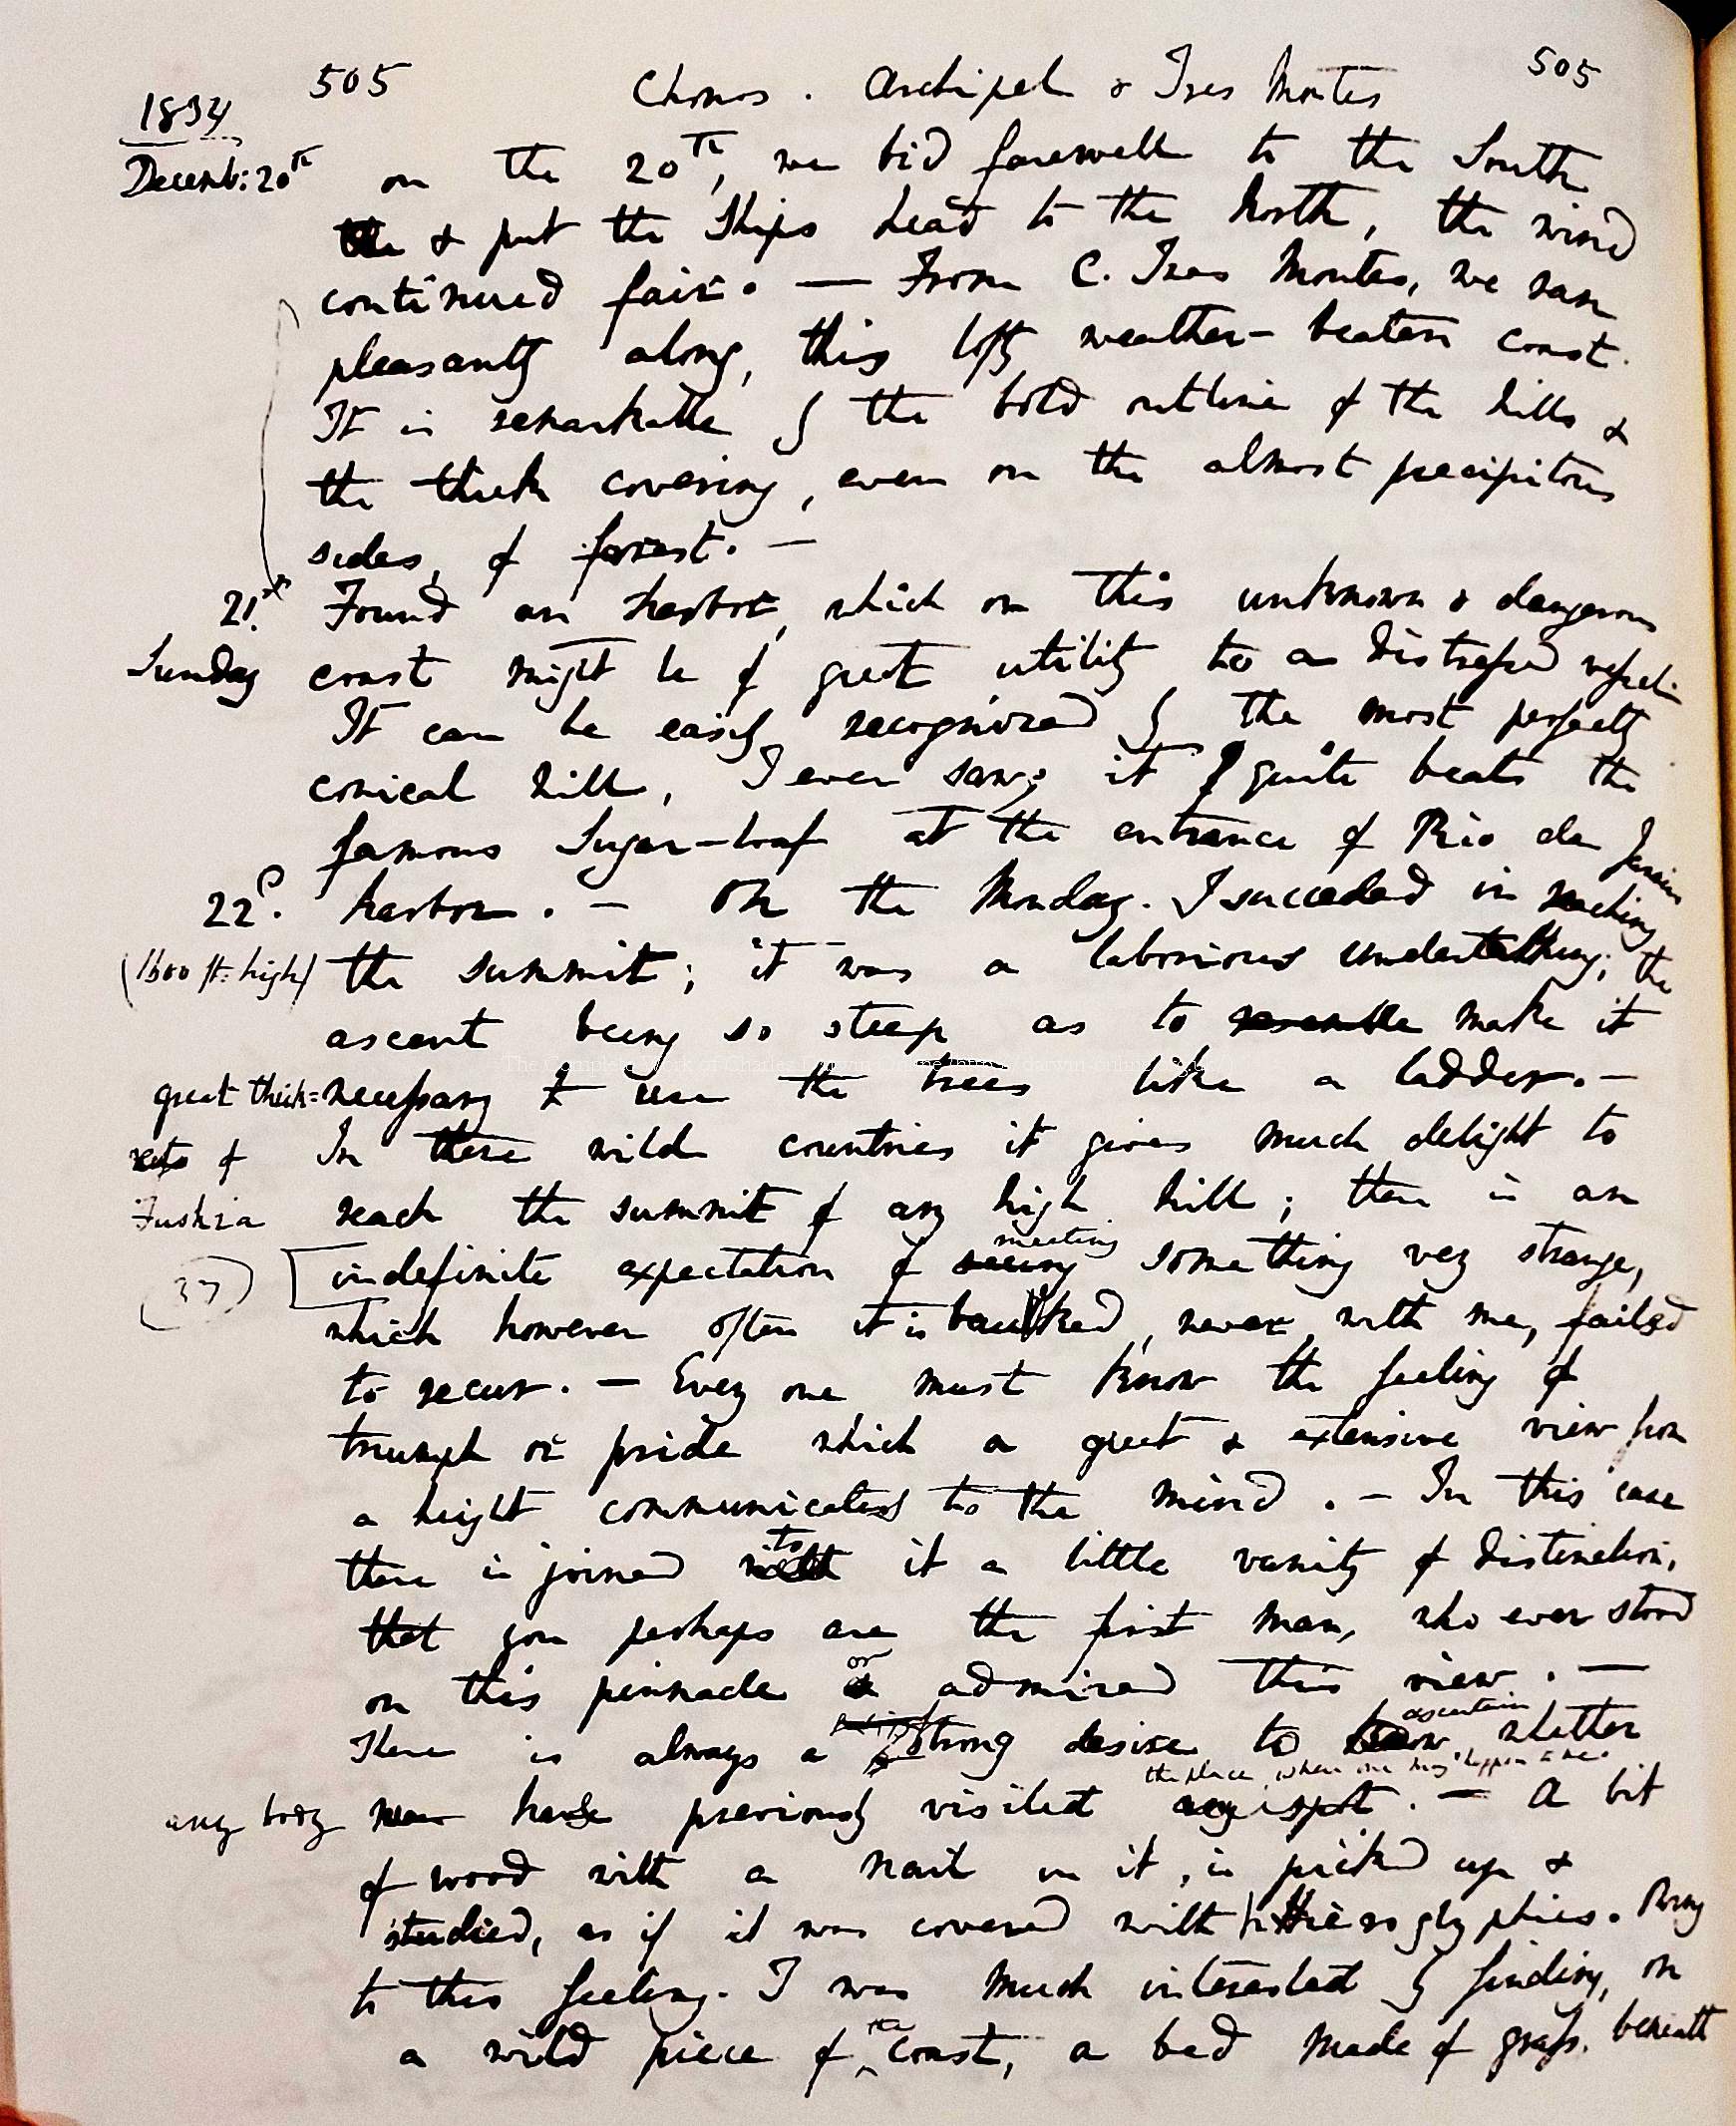 505 Chonos. Archipel & Tres Montes 505
1834
Decemb: 20th on the 20th, we bid farewell to the South
the & put the Ships head to the North, the wind
continued fair. — From C. Tres Montes, we ran
pleasantly along, this lofty weather-beaten coast.
It is remarkable by the bold outline of the hills &
the thick covering, even on the almost precipitous
sides, of forest. —
21st Found an harbor, which on this unknown & dangerous
Sunday coast might be of great utility to a distressed vessel.
It can be easily recognized by the most perfectly
conical hill, I ever saw; it quite beats the
famous Sugar-loaf at the entrance of Rio de Janeiro
22d. harbor. — On the Monday. I succeeded in reaching
(1600 ft: high) the summit; it was a laborious undertaking; the
ascent being so steep as to resemble make it
great thick= necessary to use the trees like a ladder. —
ets of In these wild countries it gives much delight to
Fushzia reach the summit of any high hill; there is an
meeting
(37) indefinite expectation of seeing something very strange,
which however often it is baulked, never, with me, failed
to recur. — Every one must know the feeling of
triumph or pride which a great & extensive view from
a height communicates to the mind. — In this case
to
there is joined with it a little vanity of distinction,
that you perhaps are the first man, who ever stood
or
on this pinnacle & admired this view. —
ascertain
There is always a strong desire to know whether
the place, where one may happen to be.
any body man has previously visited any spot. — A bit
of wood with a nail in it, is picked up &
studied, as if it was covered with hieroglyphics. Owing
to this feeling. I was much interested by finding, on
the
a wild piece of ^ coast, a bed made of grass. beneath